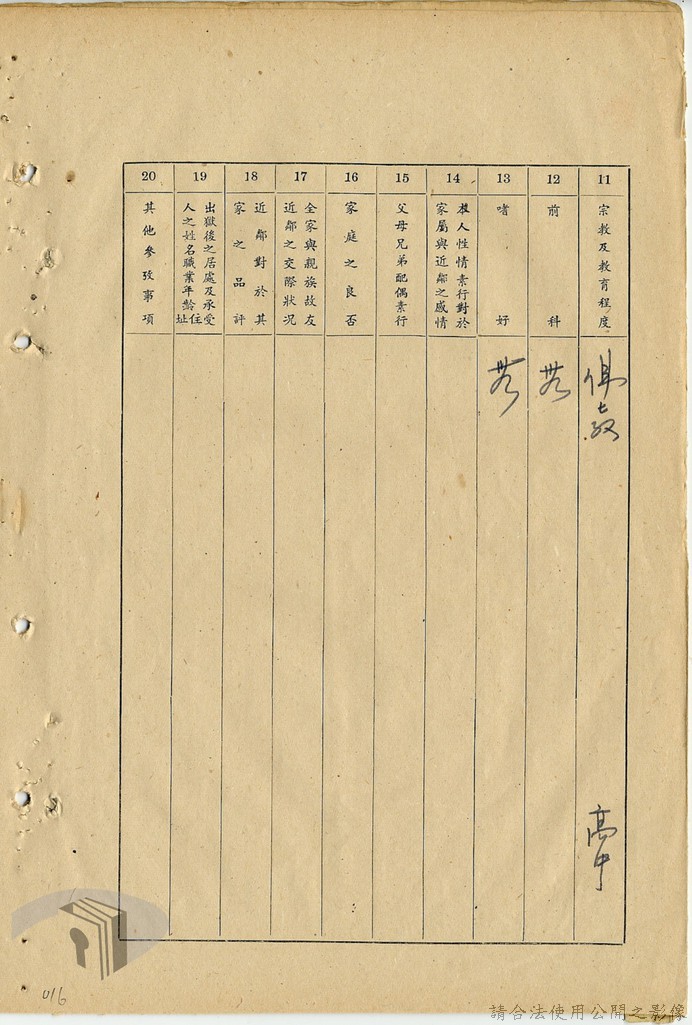 11
宗教及教育程度
佛教
高中
12
前科
無
13
嗜好
無
14
本人性情素行對於
家屬與近鄰之感情
15
父母兄弟配偶素行
16
家庭之良否
17
全家與親族故友
近鄰之交際狀況
18
近鄰對於其
家之品評
19
出獄後之居處及承受
人之姓名職業年齡住址
20
其他參攷事項
016
請合法使用公開之影像